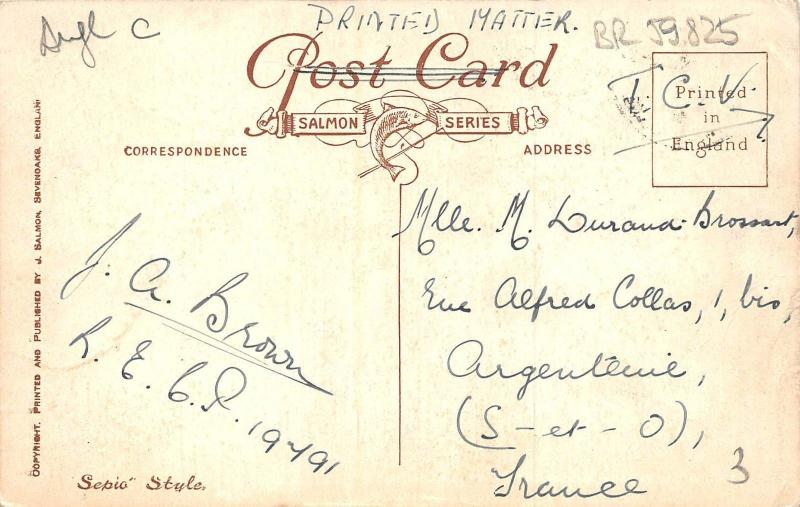 Angl C
PRINTED MATTER.
BR J9.825
Post Card
SALMON SERIES
CORRESPONDENCE
ADDRESS
Printed
in
England
T. C. V.
COPYRIGHT. PRINTED AND PUBLISHED BY J. SALMON, SEVENOAKS, ENGLAND
J. A. Brown
L. E. C. P. 19491
Mlle. M. Durand-Brossart,
Rue Alfred Collas, 1, bis,
Argenteuil,
(S-et-O),
France
3
"Sepio" Style.